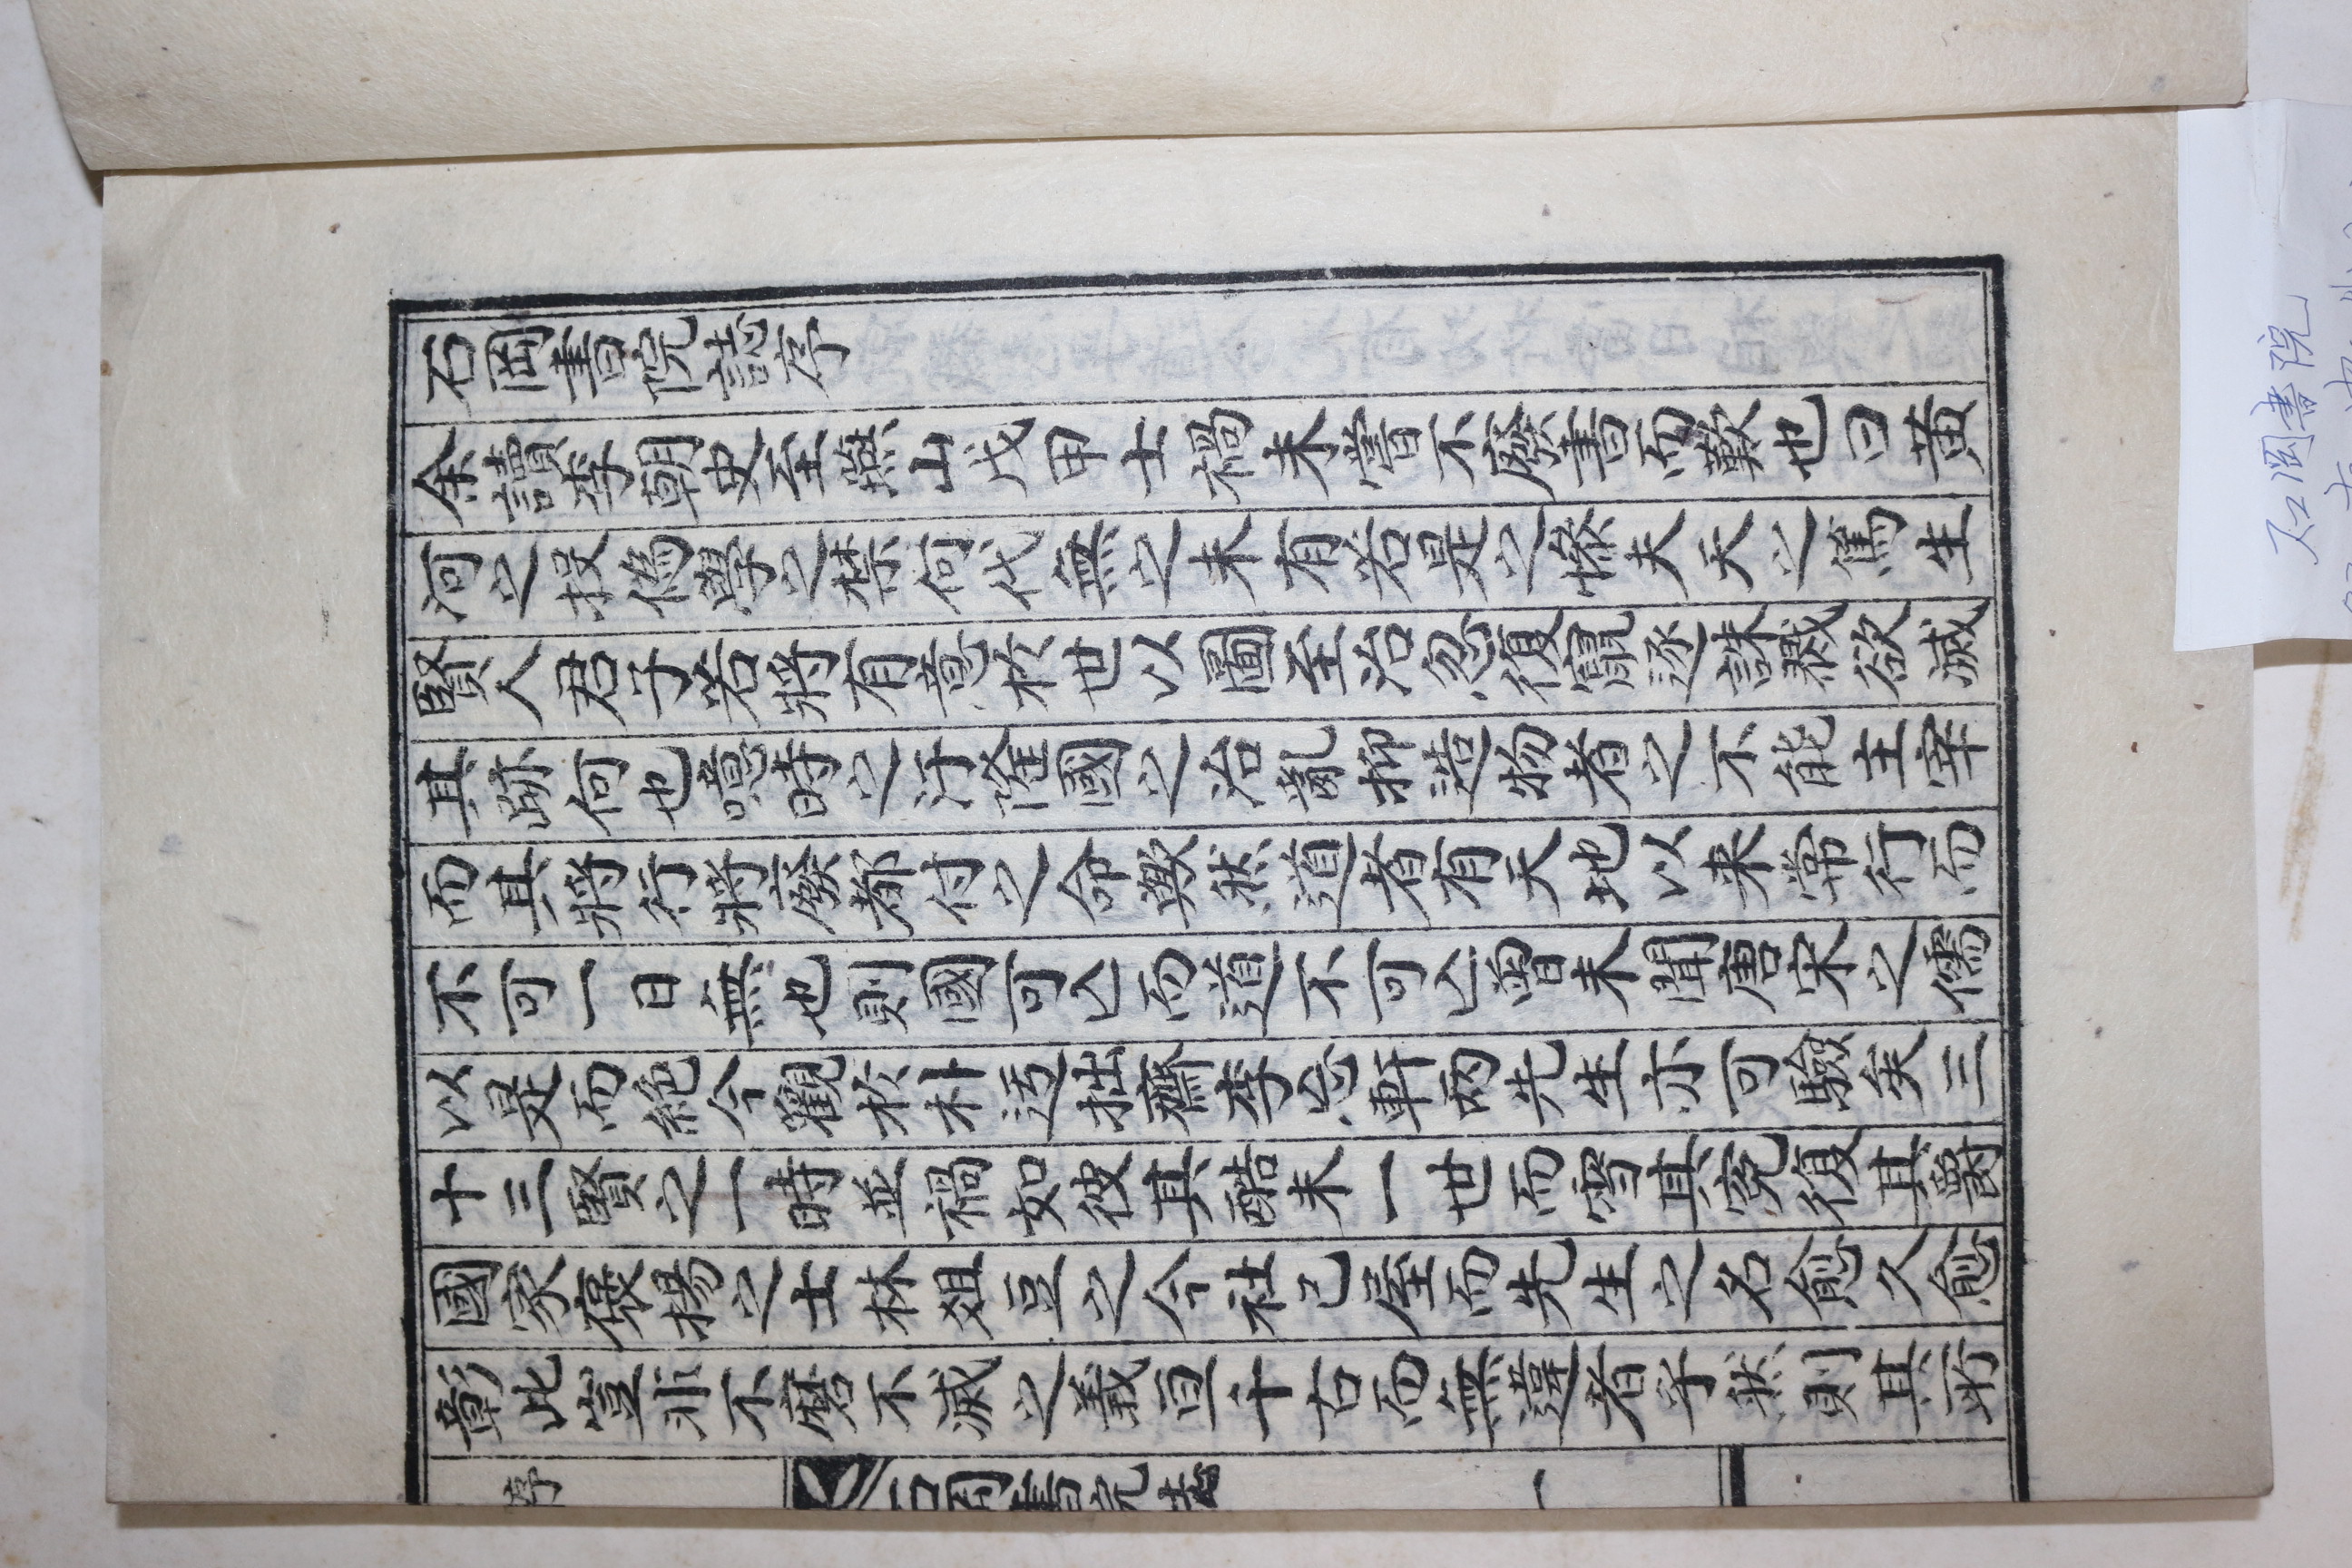 石岡書院誌序
余讀李朝史至燕山戊甲士禍未嘗不廢書而歎也曰黃
河之投僞學之禁何代無之未有若是之慘夫天之篤生
賢人君子若將有意於世以圖至治忽復竄逐誅戮欲滅
其跡何也噫時之汙隆國之治亂抑造物者之不能主宰
而其將行將廢都付之命歟然道者有天地以來常行而
不可一日無也則國可亾而道不可亾曾未聞唐宋之儒
以是而絕今觀於朴迃拙齋李忘軒兩先生亦可驗矣三
十三賢之一時並禍如彼其酷未一世而雪其寃復其爵
國家襃揚之士林俎豆之今社已屋而先生之名愈久愈
彰此豈非不磨不滅之義亘千古而無違者乎然則其所
序 石岡書院誌 一
石岡書院